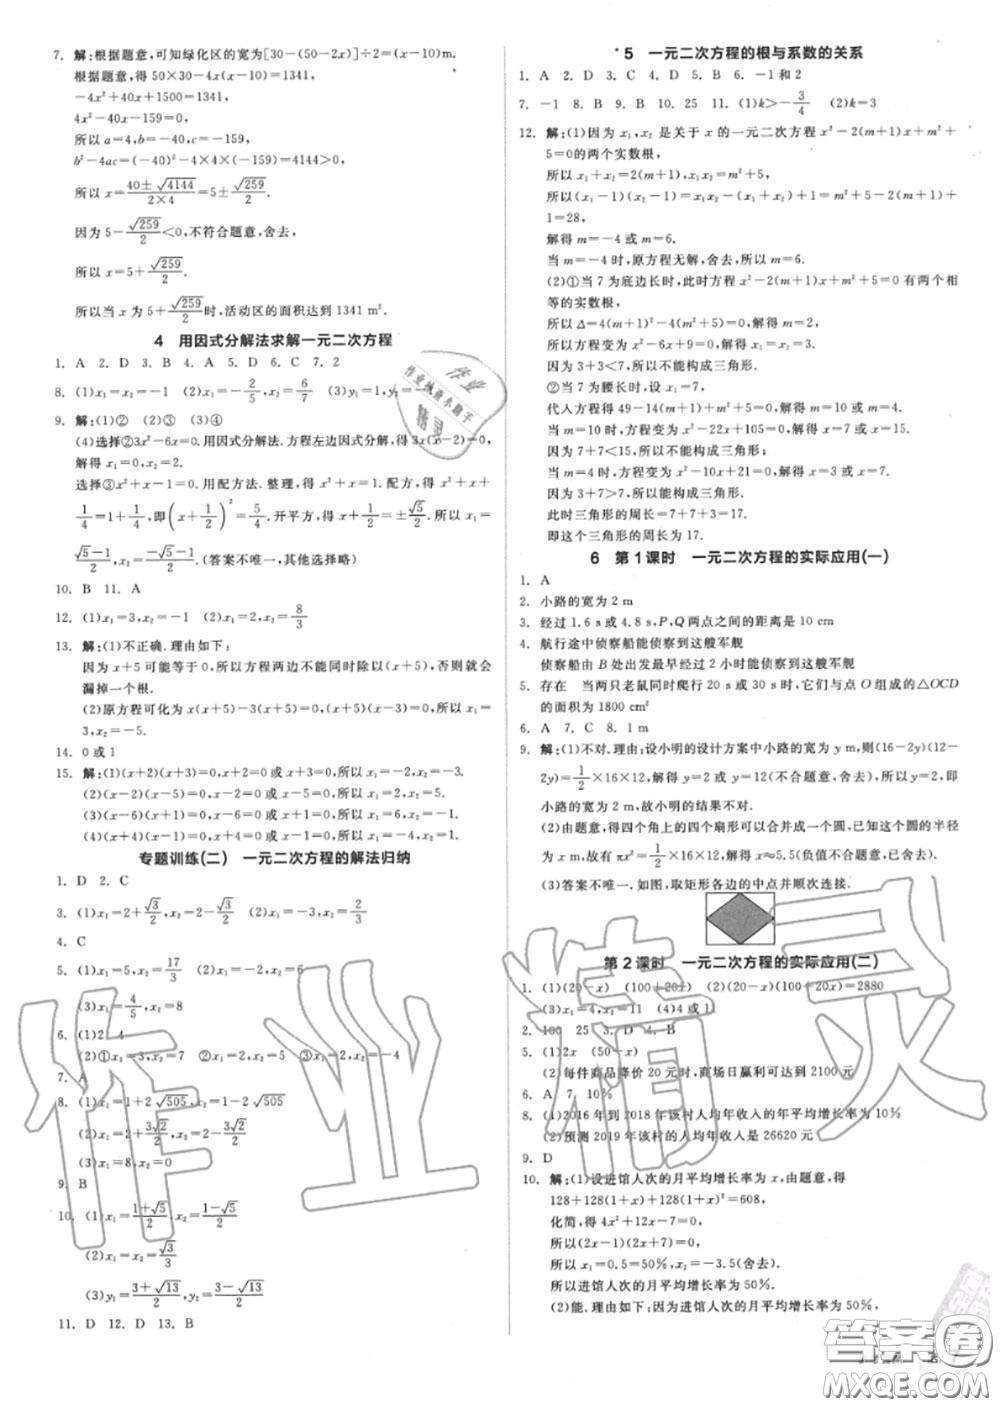 7. 解:根据题意,可知绿化区的宽为[30-(50-2x)]÷2=(x-10)m.
根据题意,得 50×30-4x(x-10)=1341,
-4x²+40x+1500=1341,
4x²-40x-159=0,
所以 a=4,b=-40,c=-159,
b²-4ac=(-40)²-4×4×(-159)=4144>0,
所以 x=(40±√4144)/(2×4)=5±√259/2.
因为 5-√259/2<0,不符合题意,舍去,
所以 x=5+√259/2.
所以当 x 为 5+√259/2时,活动区的面积达到 1341 m².
4 用因式分解法求解一元二次方程
1. A 2. D 3. B 4. A 5. D 6. C 7. 2
8. (1)x₁=-1,x₂=2 (2)x₁=-2/5,x₂=6/7 (3)y₁=1,y₂=
9. 解:(1)② (2)③ (3)④
(4)选择②3x²-6x=0.用因式分解法.方程左边因式分解,得 3x(x-2)=0,
解得 x₁=0,x₂=2.
选择③x²+x-1=0.用配方法.整理,得 x²+x=1.配方,得 x²+x+
1/4=1+1/4,即(x+1/2)²=5/4.开平方,得 x+1/2=±√5/2.所以 x₁=
(√5-1)/2,x₂=(-√5-1)/2.(答案不唯一,其他选择略)
10. B 11. A
12. (1)x₁=3,x₂=-1 (2)x₁=0,x₂=8/3
13. 解:(1)不正确.理由如下:
因为 x+5 可能等于 0,所以方程两边不能同时除以(x+5),否则就会
漏掉一个根.
(2)原方程可化为 x(x+5)-3(x+5)=0,(x-3)(x+5)=0,所以 x₁=
3,x₂=-5.
14. 0 或 1
15. 解:(1)(x+2)(x+3)=0,x+2=0 或 x+3=0,所以 x₁=-2,x₂=-3.
(2)(x-2)(x-5)=0,x-2=0 或 x-5=0,所以 x₁=2,x₂=5.
(3)(x-6)(x+1)=0,x-6=0 或 x+1=0,所以 x₁=6,x₂=-1.
(4)(x+4)(x-1)=0,x+4=0 或 x-1=0,所以 x₁=-4,x₂=1.
专题训练(二) 一元二次方程的解法归纳
1. D 2. C
3. (1)x₁=2+√3/2,x₂=2-√3/2 (2)x₁=0,x₂=2/3
4. C
5. (1)x₁=5,x₂=17/3 (2)x₁=0,x₂=6
(3)x₁=4/5,x₂=8
6. (1)2 4
(2)①x₁=3,x₂=7 ②x₁=-1,x₂=5 ③x₁=2,x₂=-4
7. A
8. (1)x₁=1+2√505,x₂=1-2√505
(2)x₁=2+3√2/2,x₂=2-3√2/2
(3)x₁=8,x₂=0
9. B
10. (1)x₁=(1+√5)/2,x₂=(1-√5)/2
(2)x₁=x₂=√3/3
(3)y₁=(3+√13)/2,y₂=(3-√13)/2
11. D 12. D 13. B
5 一元二次方程的根与系数的关系
1. A 2. D 3. C 4. D 5. B 6. -1 和 2
7. -1 8. B 9. B 10. 25 11. (1)k>-3/4 (2)k=3
12. 解:(1)因为 x₁,x₂ 是关于 x 的一元二次方程 x²-2(m+1)x+m²+
5=0的两个实数根,
所以 x₁+x₂=2(m+1),x₁x₂=m²+5,
所以(x₁-1)(x₂-1)=x₁x₂-(x₁+x₂)+1=m²+5-2(m+1)+
1=28,
解得 m=-4 或 m=6.
当 m=-4 时,原方程无解,舍去,所以 m=6.
(2)①当 7 为底边长时,此时方程 x²-2(m+1)x+m²+5=0 有两个相
等的实数根,
所以 Δ=4(m+1)²-4(m²+5)=0,解得 m=2,
所以方程变为 x²-6x+9=0,解得 x₁=x₂=3.
因为 3+3<7,所以不能构成三角形.
②当 7 为腰长时,设 x₁=7,
代入方程得 49-14(m+1)+m²+5=0,解得 m=10 或 4.
当 m=10 时,方程变为 x²-22x+105=0,解得 x=7 或 x=15.
因为 7+7<15,所以不能构成三角形;
当 m=4 时,方程变为 x²-10x+21=0,解得 x=3 或 x=7.
因为 3+7>7,所以能构成三角形.
此时三角形的周长=7+7+3=17.
即这个三角形的周长为 17.
6 第 1 课时 一元二次方程的实际应用(一)
1. A
2. 小路的宽为 2 m
3. 经过 1.6 s或 4.8 s,P,Q 两点之间的距离是 10 cm
4. 航行途中侦察船能侦察到这艘军舰
侦察船由 B 处出发最早经过 2 小时能侦察到这艘军舰
5. 存在 当两只老鼠同时爬行 20 s或 30 s时,它们与点 O 组成的△OCD
的面积为 1800 cm²
6. A 7. C 8. 1 m
9. 解:(1)不对.理由:设小明的设计方案中小路的宽为 y m,则(16-2y)(12-
2y)=1/2×16×12,解得 y=2 或 y=12(不合题意,舍去),所以
小路的宽为 2 m,故小明的结果不对.
(2)由题意,得四个角上的四个扇形可以合并成一个圆,设这个圆的半径
为 x m,故有 πx²=1/2×16×12,解得 x≈5.5(负值不合题意,舍去).
(3)答案不唯一.如图,取矩形各边的中点并顺次连接.
第 2 课时 一元二次方程的实际应用(二)
1. (1)(20-x) (100+20x) (2)(20-x)(100+20x)=2880
(3)x₁=4,x₂=11 (4)4 或 11
2. 100 25 3. D 4. B
5. (1)2x (50-x)
(2)每件商品降价 20 元时,商场日赢利可达到 2100 元
6. A 7. 10%
8. (1)2016 年到 2018 年该村人均年收入的年平均增长率为 10%
(2)预测 2019 年该村的人均年收入是 26620 元
9. D
10. 解:(1)设进馆人次的月平均增长率为 x,由题意,得
128+128(1+x)+128(1+x)²=608,
化简,得 4x²+12x-7=0,
所以(2x-1)(2x+7)=0,
所以 x₁=0.5=50%,x₂=-3.5(舍去).
所以进馆人次的月平均增长率为 50%.
(2)能.理由如下:因为进馆人次的月平均增长率为 50%,
作业精灵
作业
作业快查小助手
精灵
答案圈
MXQE.COM